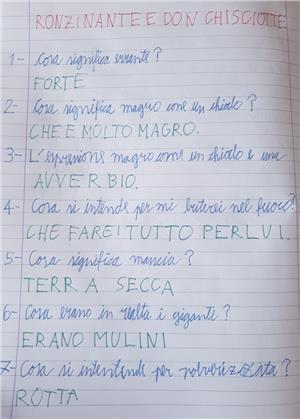 RONZINANTE E DON CHISCIOTTE
1- Cosa significa errante?
FORTE
2- Cosa significa magro come un chiodo?
CHE E MOLTO MAGRO.
3- L'espressione magro come un chiodo è una
AVVERBIO.
4- Cosa si intende per mi butterei nel fuoco?
CHE FAREI TUTTO PER LUI.
5- Cosa significa mancia?
TERRA SECCA
6- Cosa erano in realta i giganti?
ERANO MULINI
7- Cosa si intentende per polverizzata?
ROTTA